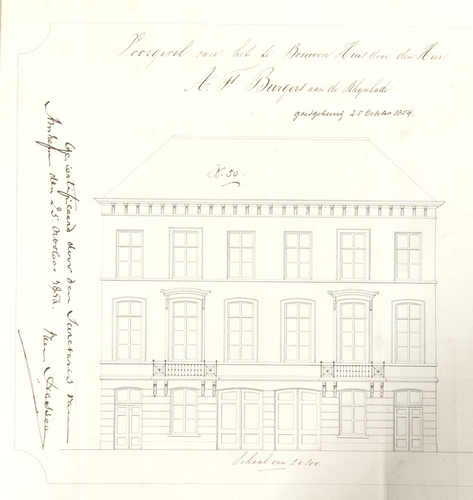 Voorgevel van het te Bouwen Huis door den Heer
A. F. Burgers aan de Rhynkade
goedgekeurd 25 October 1854.
N. 50.
Gecertificeerd door den Secretaris van
Arnhem den 25 October 1854.
Schaal van 1 à 100.